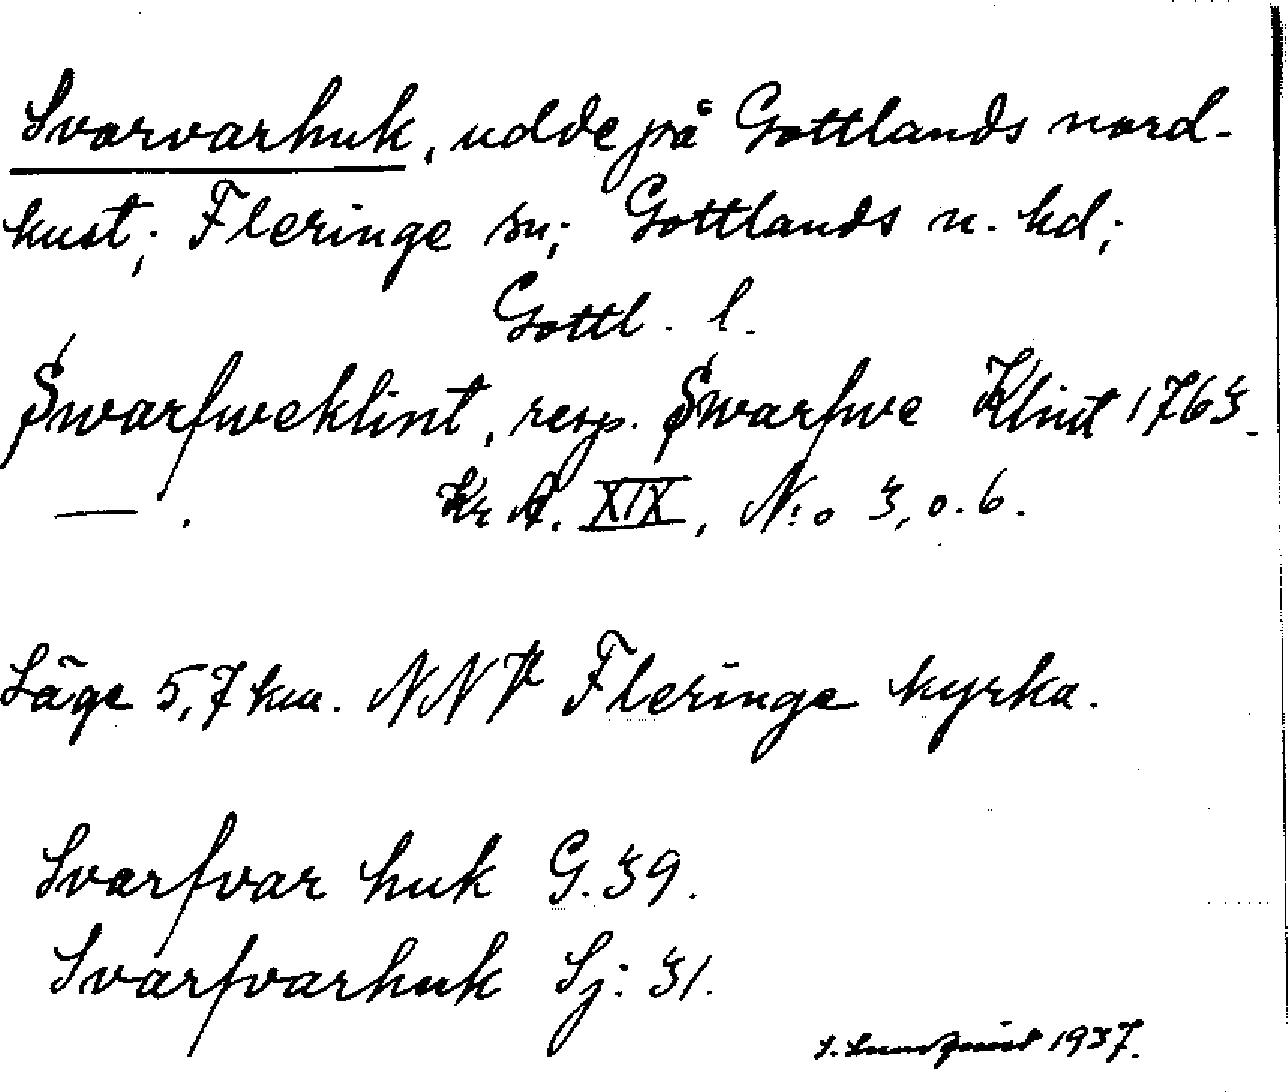 Svarvarhuk, udde på Gottlands nord-
kust; Fleringe sn; Gottlands n. hd;
Gottl. l.
Swarfweklint, resp. Swarfwe Klint 1763.
—. Kr A. XIX, N:o 3, o. 6.
Läge 5,7 km. NNV Fleringe kyrka.
Svarfvar huk G. 39.
Svarfvarhuk Sj: 31.
1937.